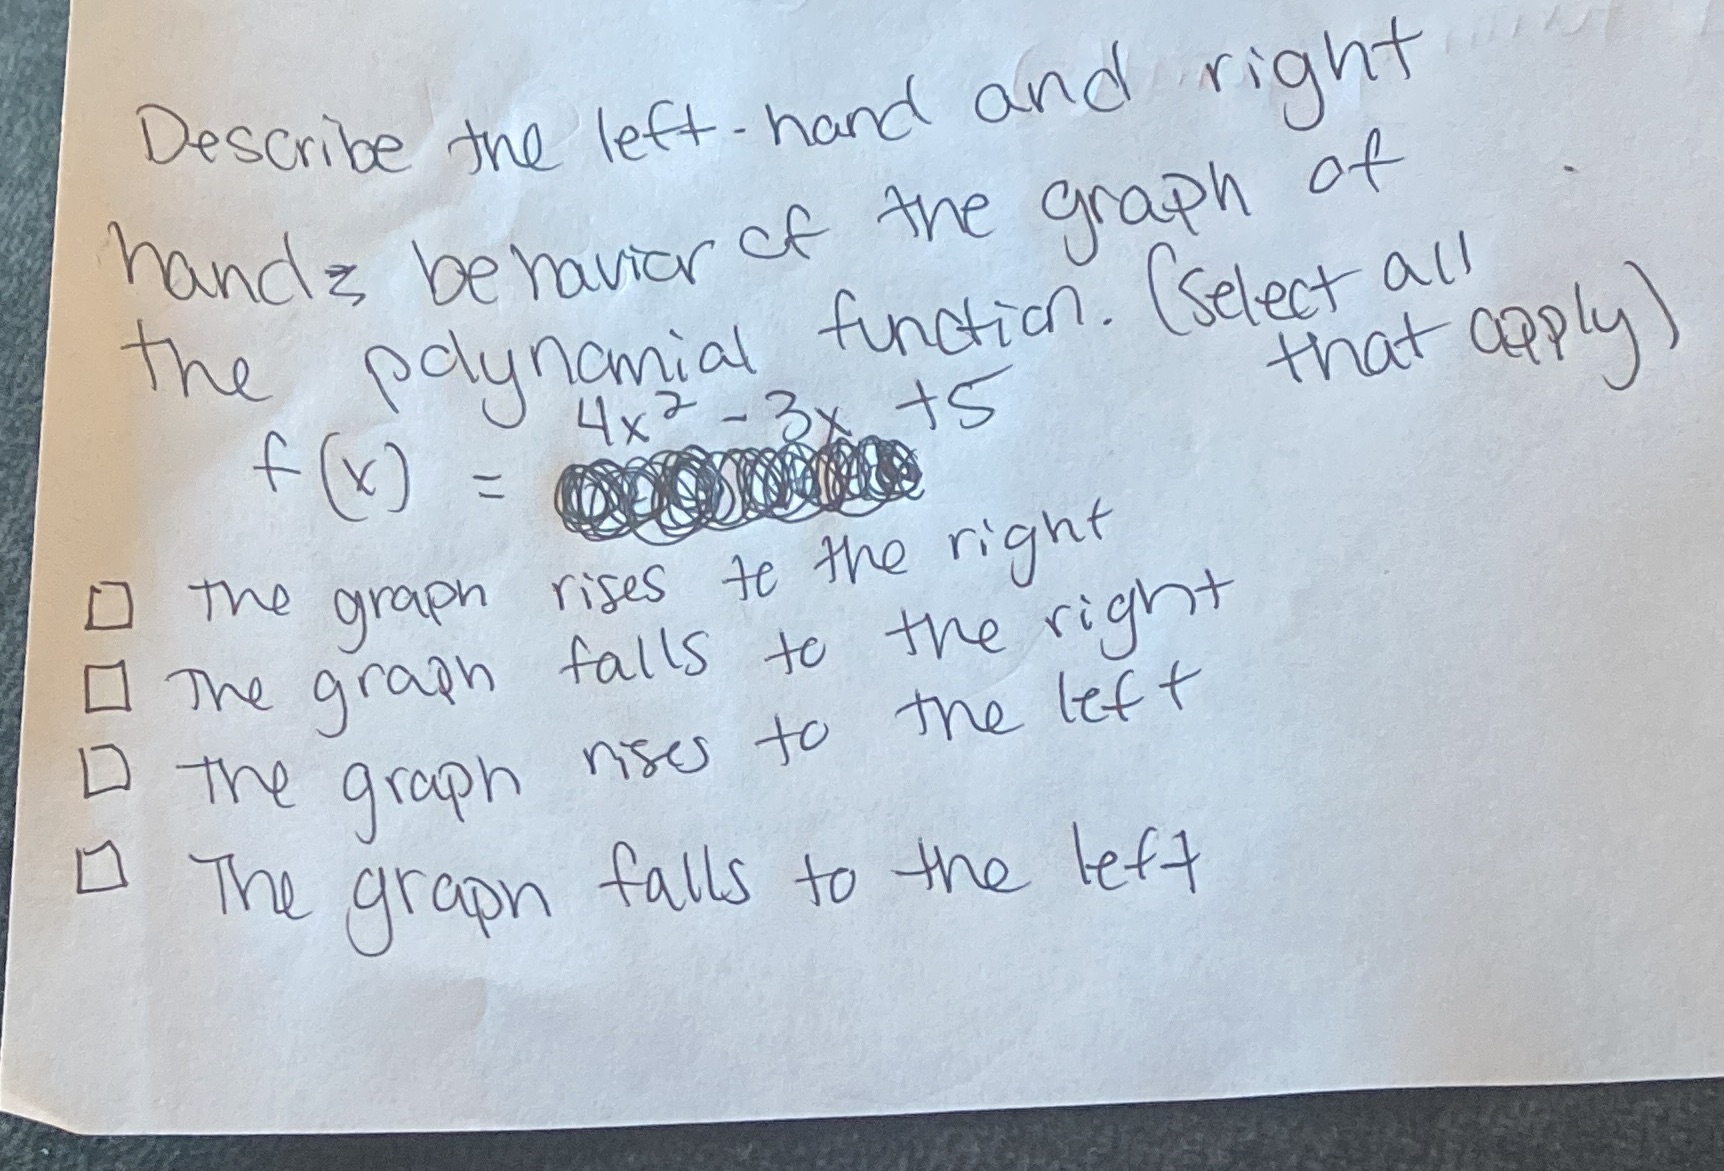 Describe the left-hand and right
hand behavior of the graph of
the polynomial function. (Select all
that apply)
4x² - 3x +5
f(x) =
□ The graph rises to the right
□ The graph falls to the right
□ The graph rises to the left
□ The graph falls to the left